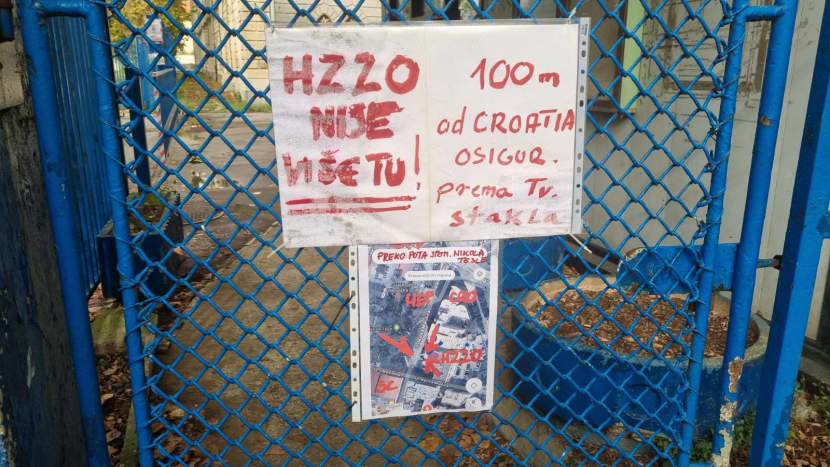 HZZO
NIJE
VIŠE TU!
100m
od CROATIA
OSIGUR.
prema Tv.
stakla
PREKO PUTA SPOM. NIKOLA
TESLE
HEP CRO
HZZO
SC